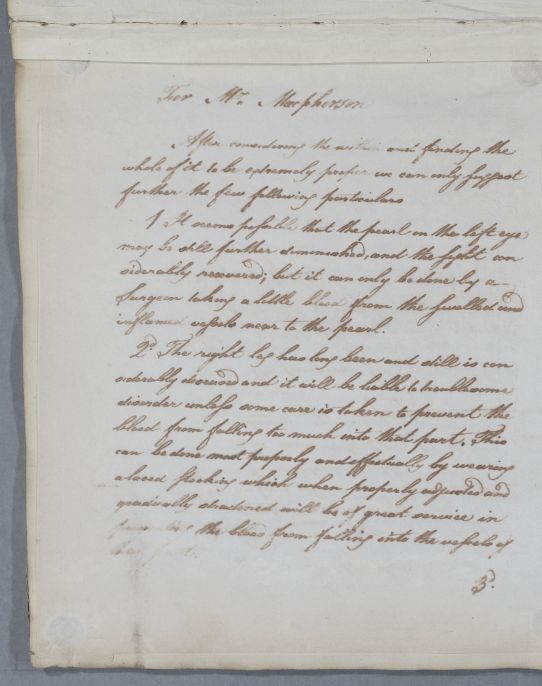 For Mr. Macpherson
After considering the within and finding the
whole of it to be extremely proper we can only suggest
further the few following particulars
1 It seems possible that the pearl on the left eye
may be still further diminished, and the sight con
siderably recovered; but it can only be done by a
Surgeon taking a little blood from the swelled and
inflamed vessels near to the pearl.
2d. The right leg has long been and still is con
siderably diseased and it will be liable to troublesome
disorder unless some care is taken to prevent the
blood from falling too much into that part. This
can be done most properly and effectually by wearing
a laced stocking which when properly adjusted and
gradually straitened will be of great service in
the blood from falling into the vessels of
3d.